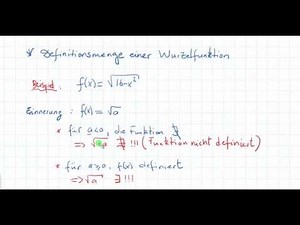 * Definitionsmenge einer Wurzelfunktion
Beispiel: f(x) = √16-x²
Erinnerung: f(x) = √a
* für a<0, die Funktion ∄
=> √a ∄ !!! (Funktion nicht definiert)
* für a≥0, f(x) definiert
=> √a ∃ !!!